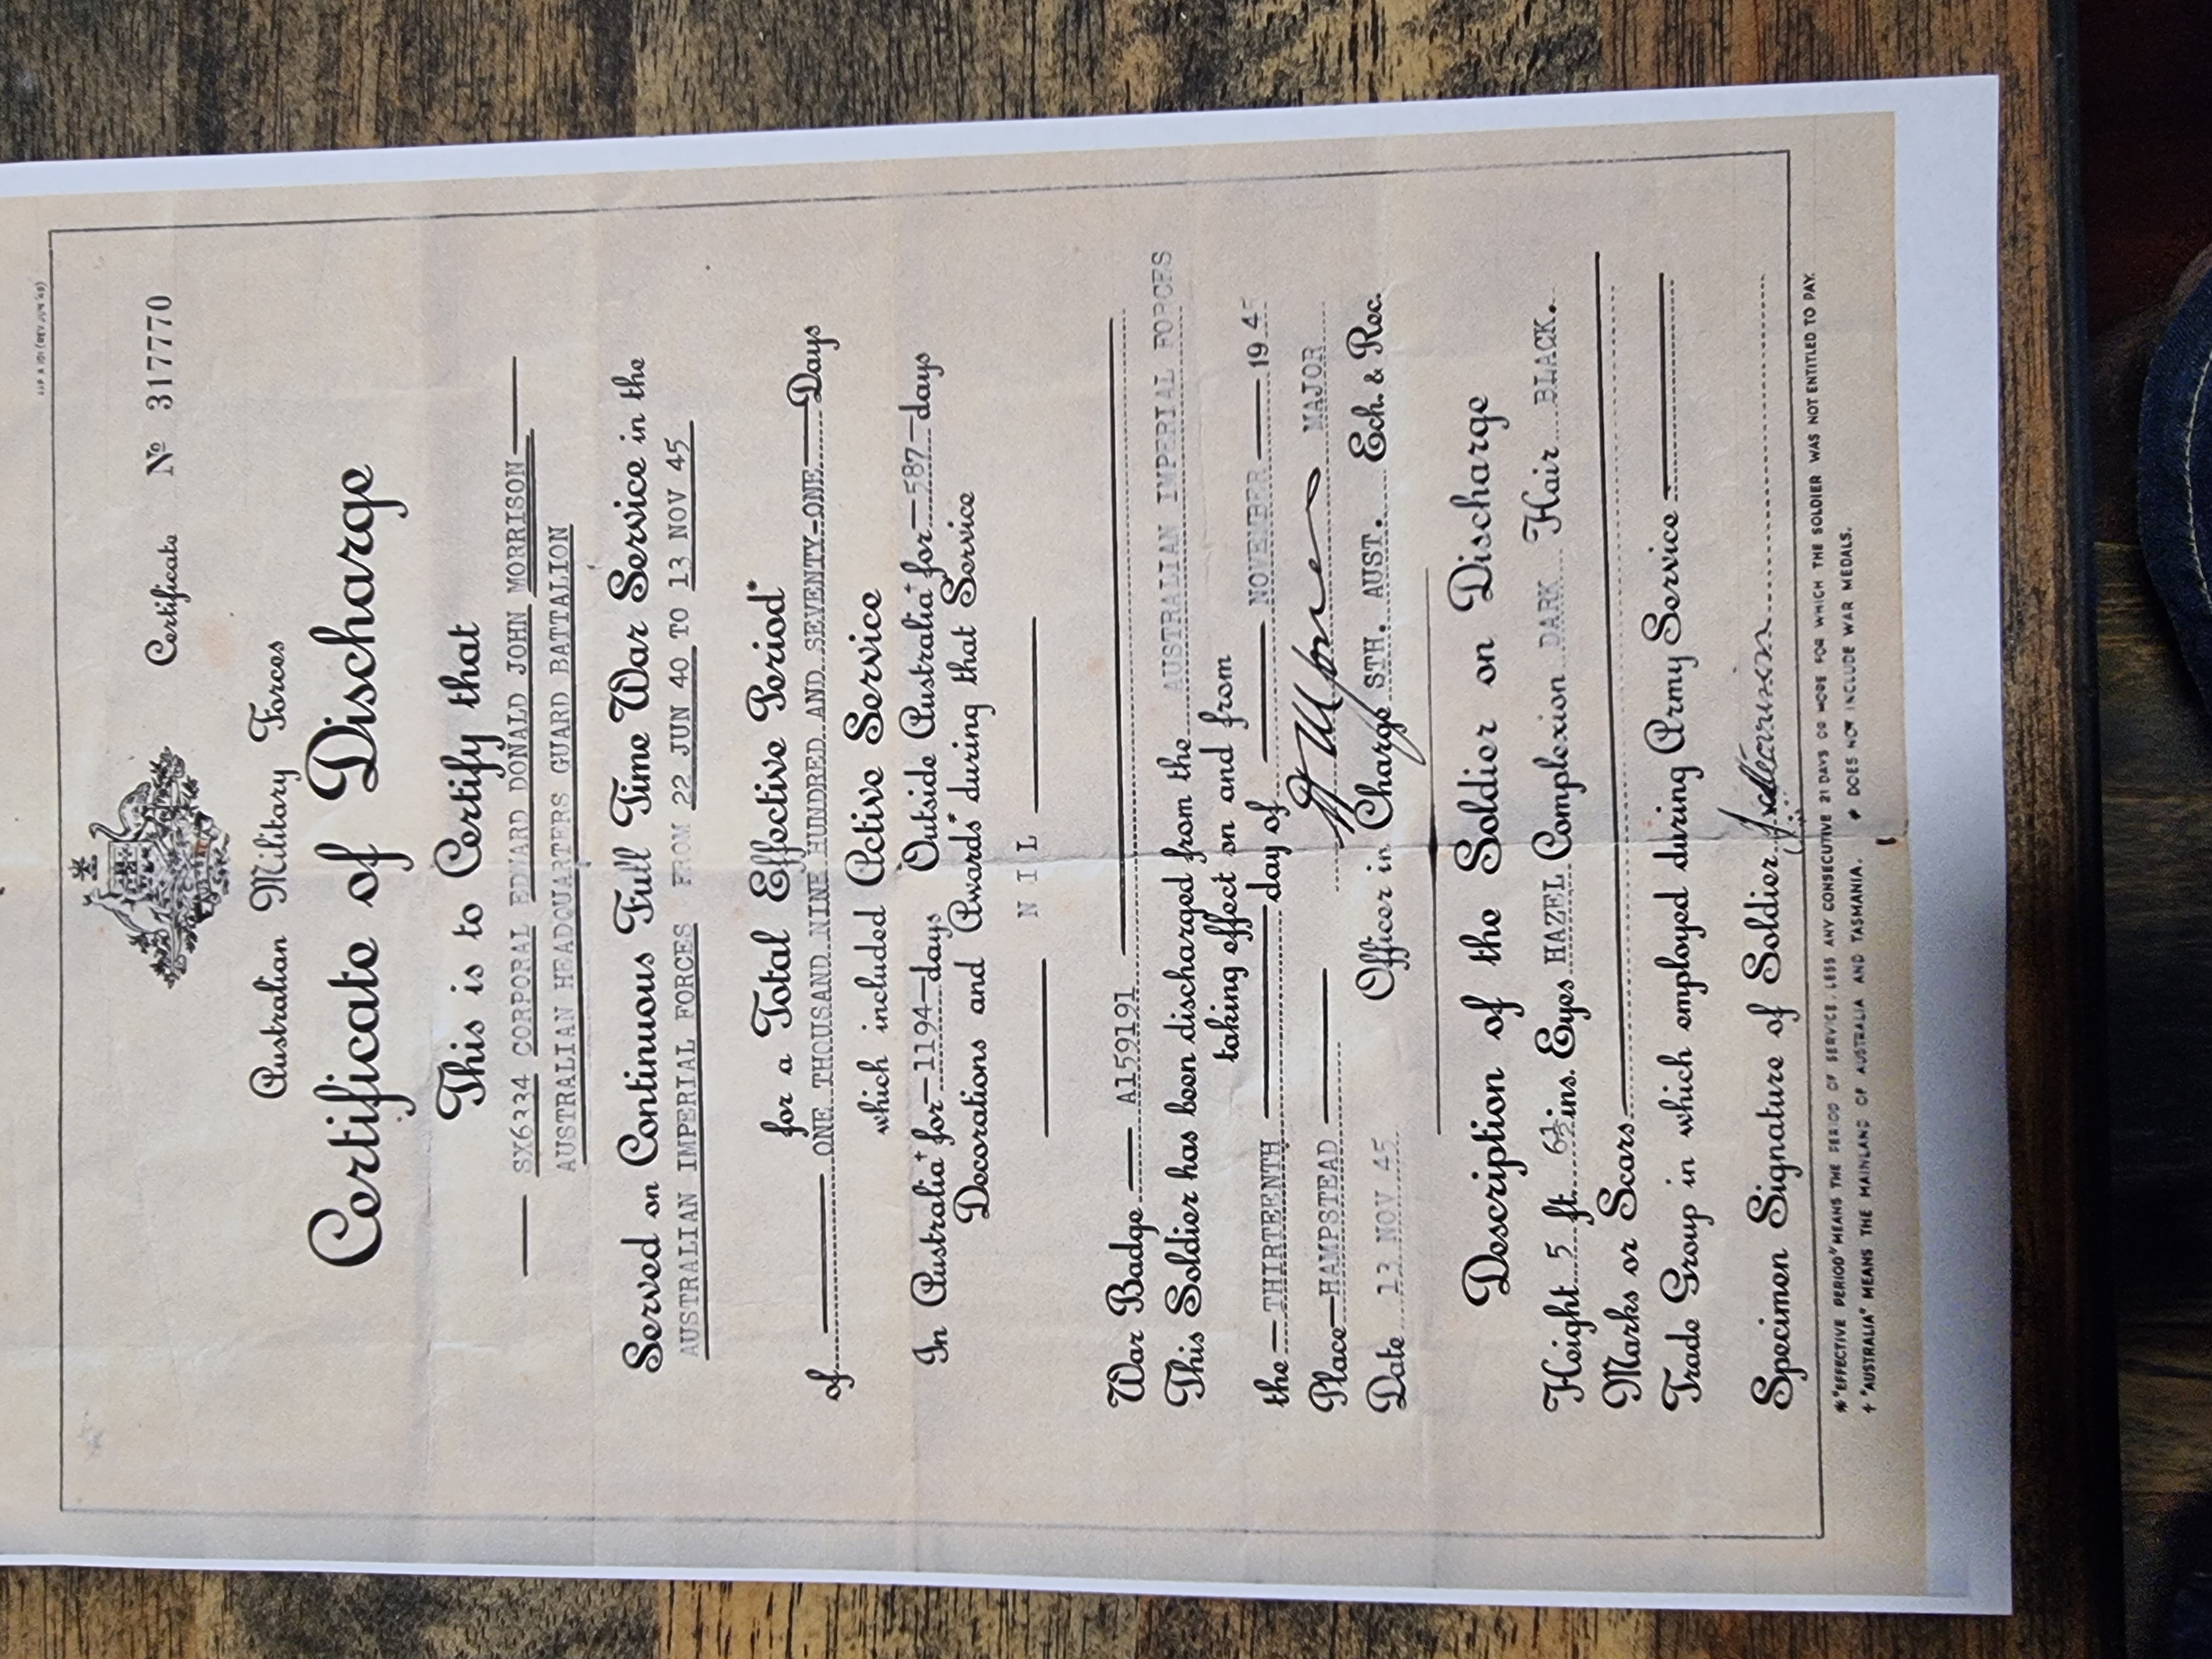 Certificate No 317770
Australian Military Forces
Certificate of Discharge
This is to Certify that
SX6334 CORPORAL EDWARD DONALD JOHN MORRISON
AUSTRALIAN HEADQUARTERS GUARD BATTALION
Served on Continuous Full Time War Service in the
AUSTRALIAN IMPERIAL FORCES FROM 22 JUN 40 TO 13 NOV 45
for a Total Effective Period*
of ONE THOUSAND NINE HUNDRED AND SEVENTY-ONE Days
which included Active Service
In Australia† for 1194 days Outside Australia† for 587 days
Decorations and Awards# during that Service
NIL
War Badge A159191
This Soldier has been discharged from the AUSTRALIAN IMPERIAL FORCES
taking effect on and from
the THIRTEENTH day of NOVEMBER 1945
Place HAMPSTEAD MAJOR
Date 13 NOV 45 Officer in Charge STH. AUST. Ech. & Rec.
Description of the Soldier on Discharge
Height 5 ft. 6½ ins. Eyes HAZEL Complexion DARK Hair BLACK.
Marks or Scars
Trade Group in which employed during Army Service
Specimen Signature of Soldier
* "EFFECTIVE PERIOD" MEANS THE PERIOD OF SERVICE, LESS ANY CONSECUTIVE 21 DAYS OR MORE FOR WHICH THE SOLDIER WAS NOT ENTITLED TO PAY.
† "AUSTRALIA" MEANS THE MAINLAND OF AUSTRALIA AND TASMANIA. # DOES NOT INCLUDE WAR MEDALS.